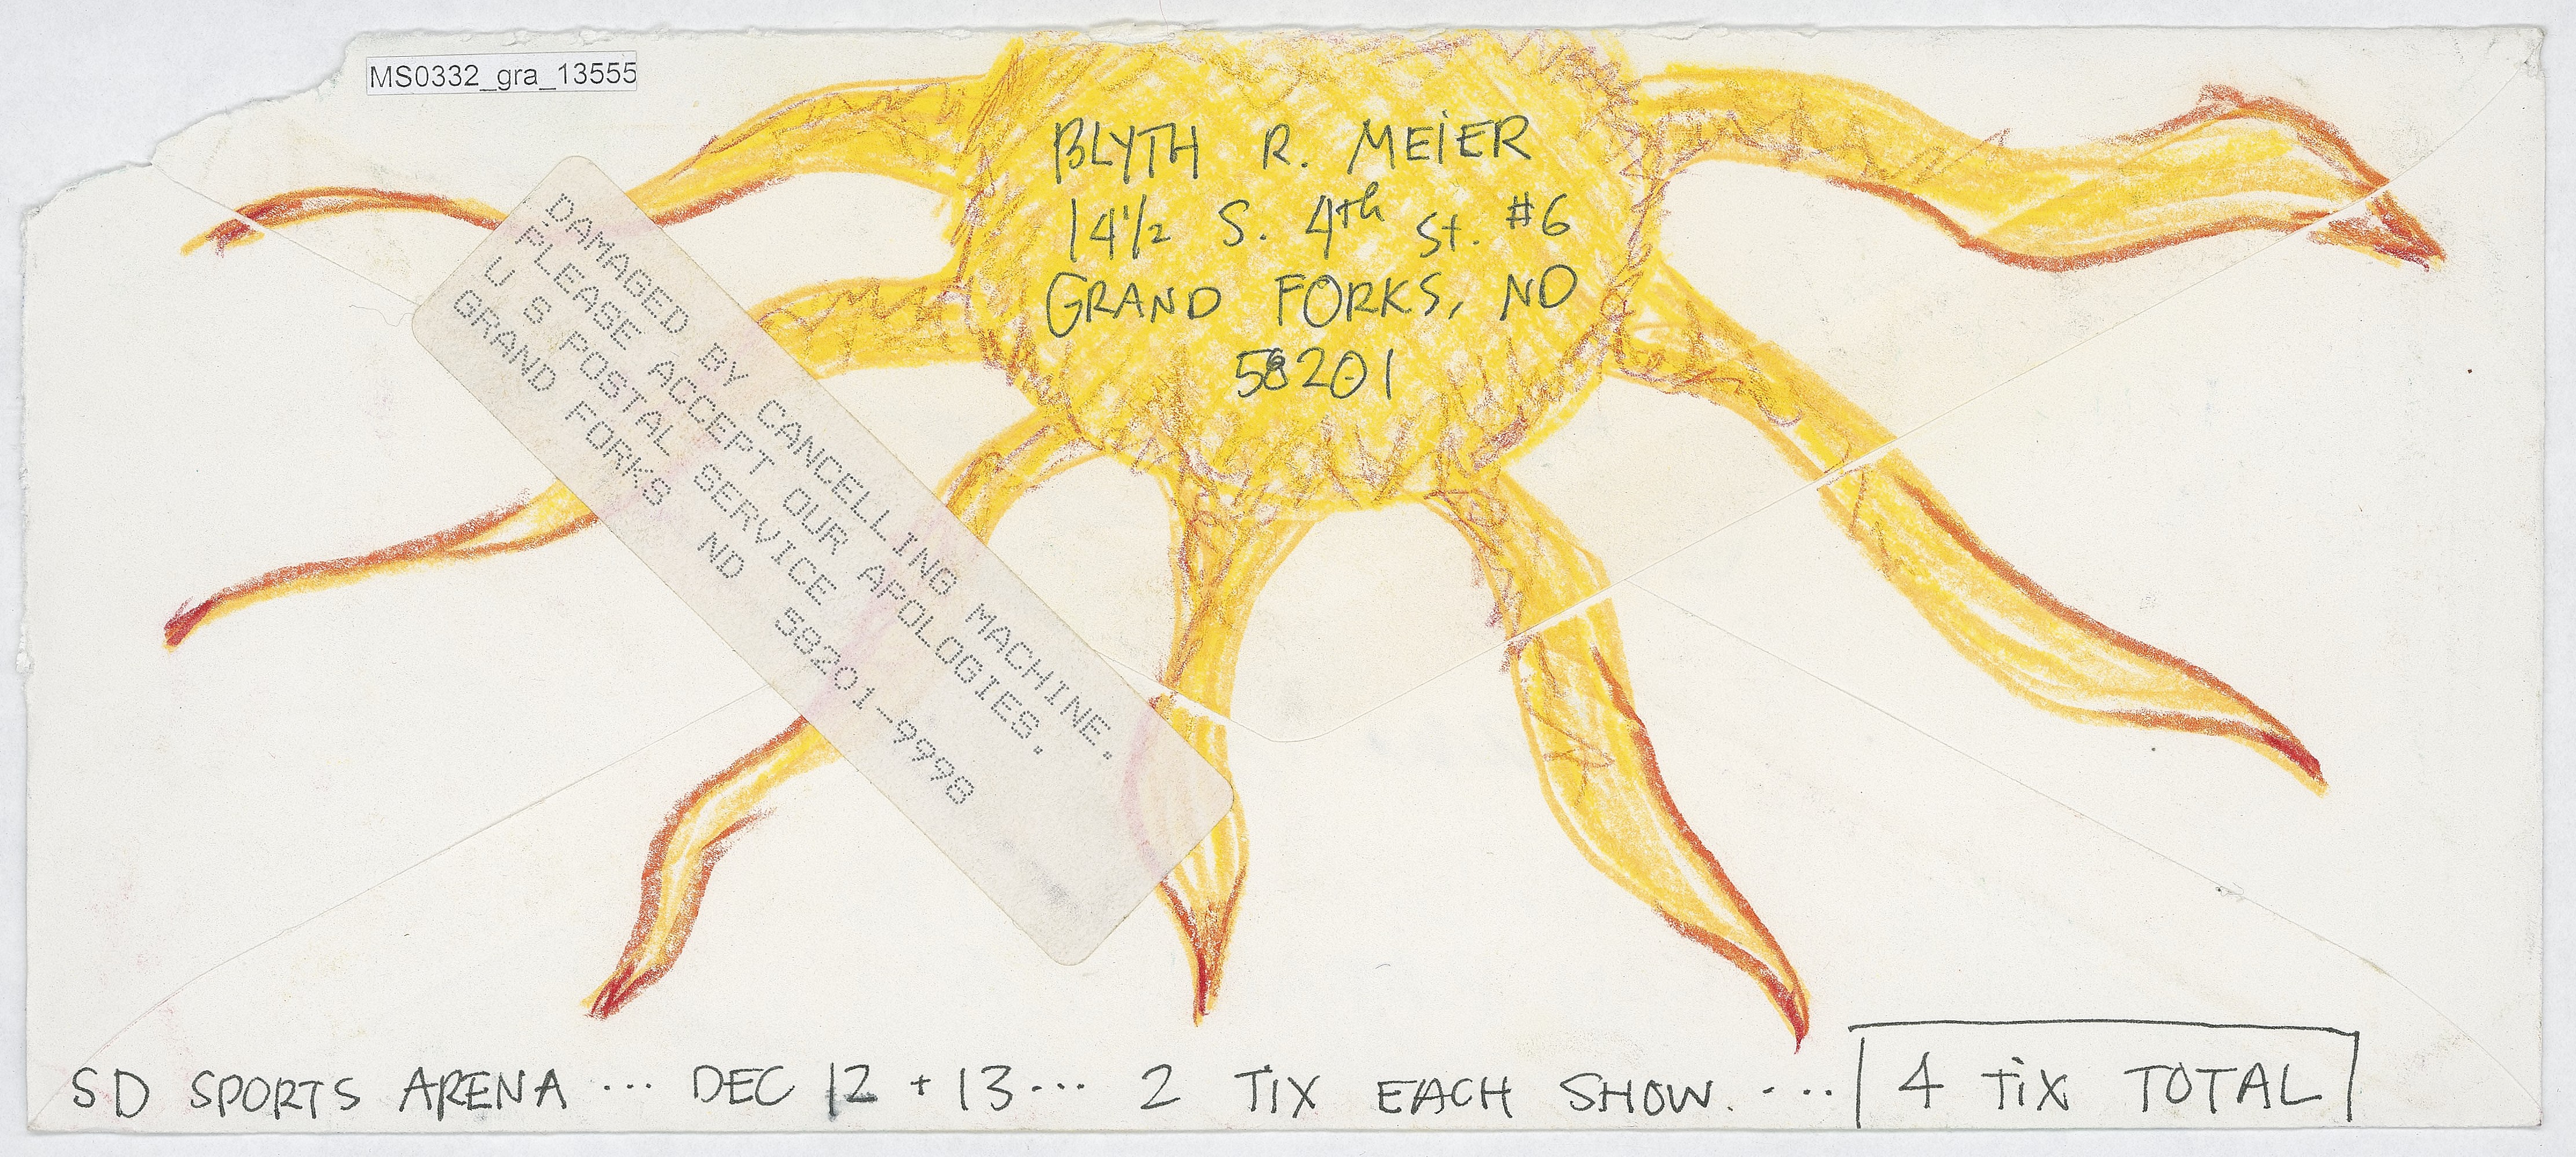 MS0332_gra_13555
BLYTH R. MEiER
14 1/2 S. 4th St. #6
GRAND FORKS, ND
58201
DAMAGED BY CANCELLING MACHINE.
PLEASE ACCEPT OUR APOLOGIES.
U S POSTAL SERVICE
GRAND FORKS ND 58201-9998
SD SPORTS ARENA ... DEC 12 + 13 ... 2 TiX EACH SHOW. .... 4 TiX TOTAL